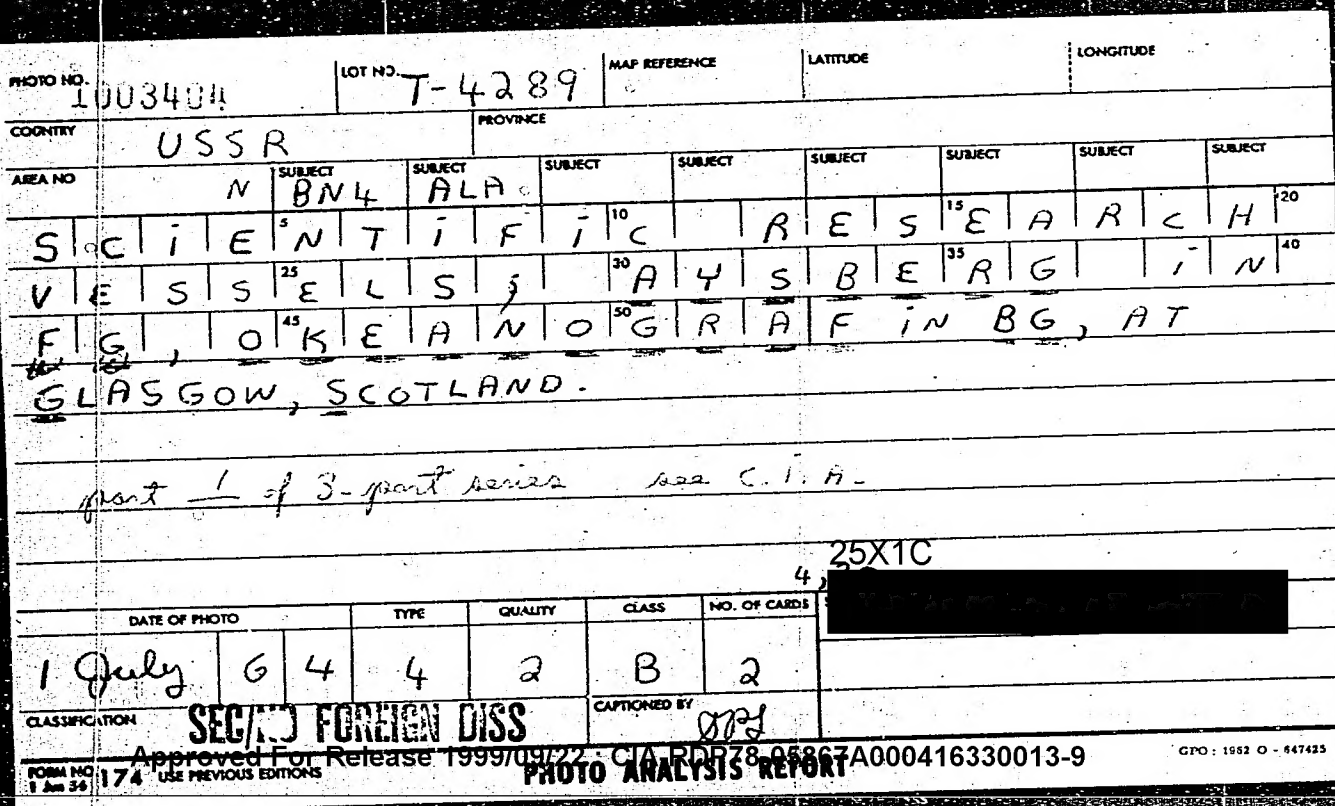 PHOTO NO. 1003404 LOT NO. T-4289 MAP REFERENCE LATITUDE LONGITUDE
COUNTRY USSR PROVINCE
AREA NO N SUBJECT BN4 SUBJECT ALA SUBJECT SUBJECT SUBJECT SUBJECT SUBJECT SUBJECT
SCIENTIFIC RESEARCH 5 10 15 20
VESSELS; AYSBERG IN 25 30 35 40
FG, OKEANOGRAF IN BG, AT 45 50
GLASGOW, SCOTLAND.
part 1 of 3-part series see C.I.A.
25X1C
4,
DATE OF PHOTO TYPE QUALITY CLASS NO. OF CARDS
1 July 64 4 2 B 2
CLASSIFICATION SEC/NO FOREIGN DISS CAPTIONED BY
Approved For Release 1999/09/22 : CIA-RDP78-05867A000416330013-9 GPO : 1962 O - 647425
FORM NO 174 USE PREVIOUS EDITIONS PHOTO ANALYSIS REPORT
1 Jun 56